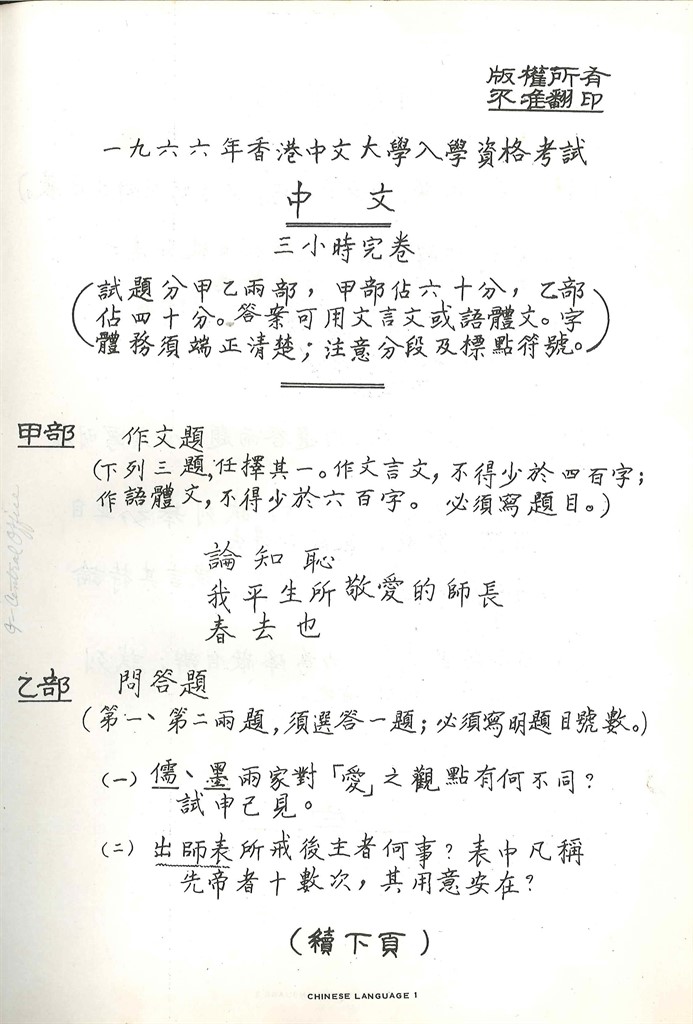 版權所有
不准翻印
一九六六年香港中文大學入學資格考試
中 文
三小時完卷
（試題分甲乙兩部，甲部佔六十分，乙部
佔四十分。答案可用文言文或語體文。字
體務須端正清楚；注意分段及標點符號。）
甲部 作文題
（下列三題，任擇其一。作文言文，不得少於四百字；
作語體文，不得少於六百字。 必須寫題目。）
論知恥
我平生所敬愛的師長
春去也
乙部 問答題
（第一、第二兩題，須選答一題；必須寫明題目號數。）
（一）儒、墨兩家對「愛」之觀點有何不同？
試申己見。
（二）出師表所戒後主者何事？表中凡稱
先帝者十數次，其用意安在？
（續下頁）
CHINESE LANGUAGE 1
Central Office